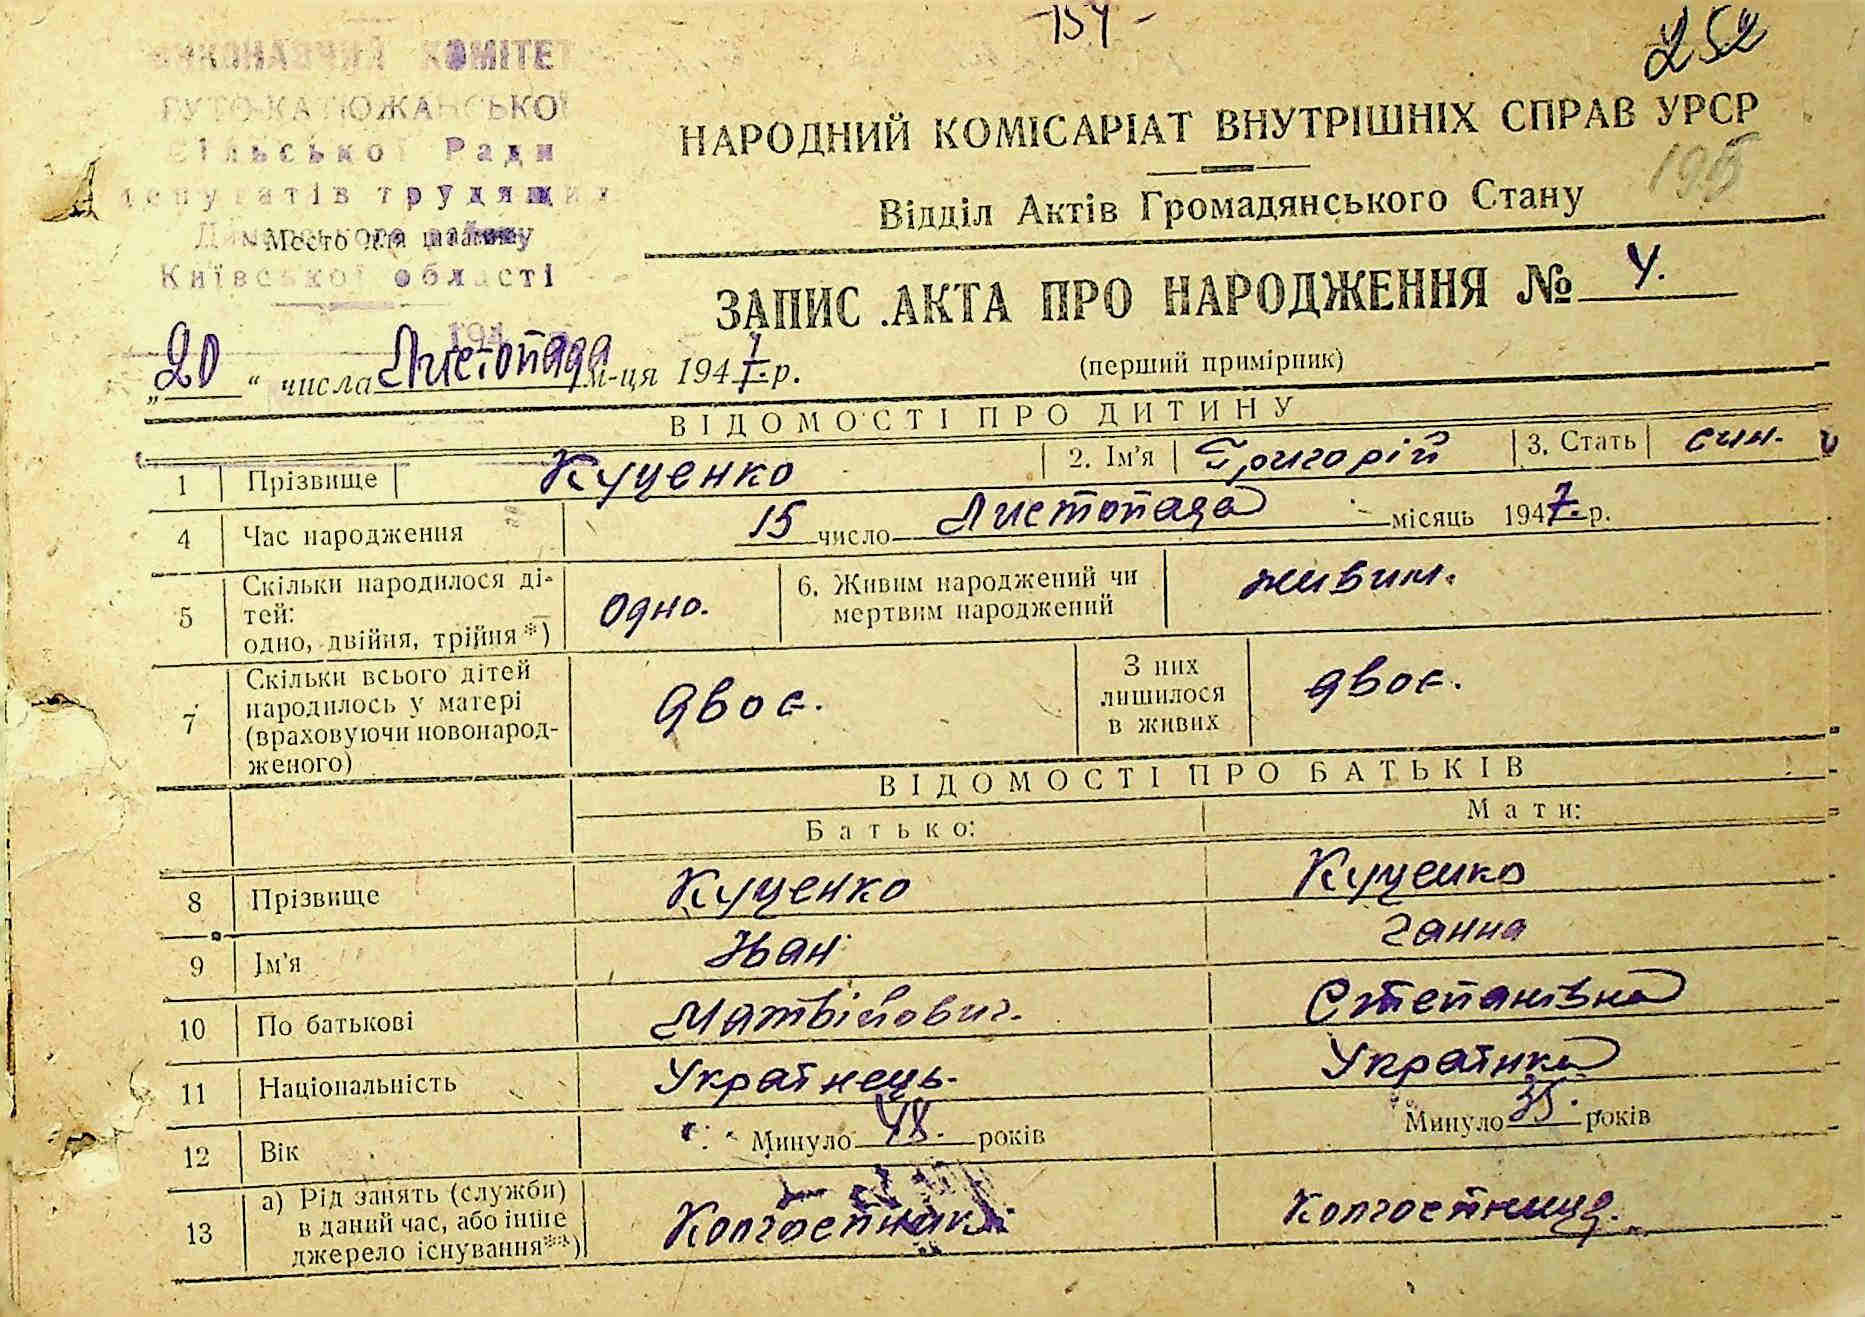 -154-
252
195
ВИКОНАВЧИЙ КОМІТЕТ
РУТО-КАТЮЖАНСЬКОЇ
Сільської Ради
депутатів трудящих
Димерського району
Место для штампу
Київської області
194
НАРОДНИЙ КОМІСАРІАТ ВНУТРІШНІХ СПРАВ УРСР
Відділ Актів Громадянського Стану
ЗАПИС АКТА ПРО НАРОДЖЕННЯ № 4.
„20“ числа Листопада м-ця 1947 р.
(перший примірник)
ВІДОМОСТІ ПРО ДИТИНУ
1 Прізвище Куценко 2. Ім'я Григорій 3. Стать син.
4 Час народження 15 число Листопада місяць 1947 р.
5 Скільки народилося ді-
тей:
одно, двійня, трійня*) Одно. 6. Живим народжений чи
мертвим народжений живим.
7 Скільки всього дітей
народилось у матері
(враховуючи новонарод-
женого) двоє. З них
лишилося
в живих двоє.
ВІДОМОСТІ ПРО БАТЬКІВ
Батько: Мати:
8 Прізвище Куценко Куценко
9 Ім'я Іван Ганна
10 По батькові Матвійович. Степанівна
11 Національність Українець. Українка
12 Вік Минуло 48. років Минуло 35. років
13 а) Рід занять (служби)
в даний час, або інше
джерело існування**) Колгоспник Колгоспниця.